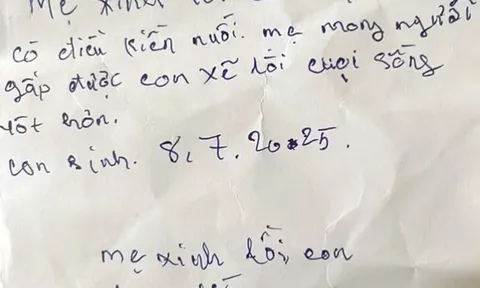 Mẹ xinh
có điều kiến nuối. mẹ mong người
gấp được con xẽ tối cuọi sống
tốt hơn.
con sinh. 8, 7. 2025.
mẹ xinh lối con